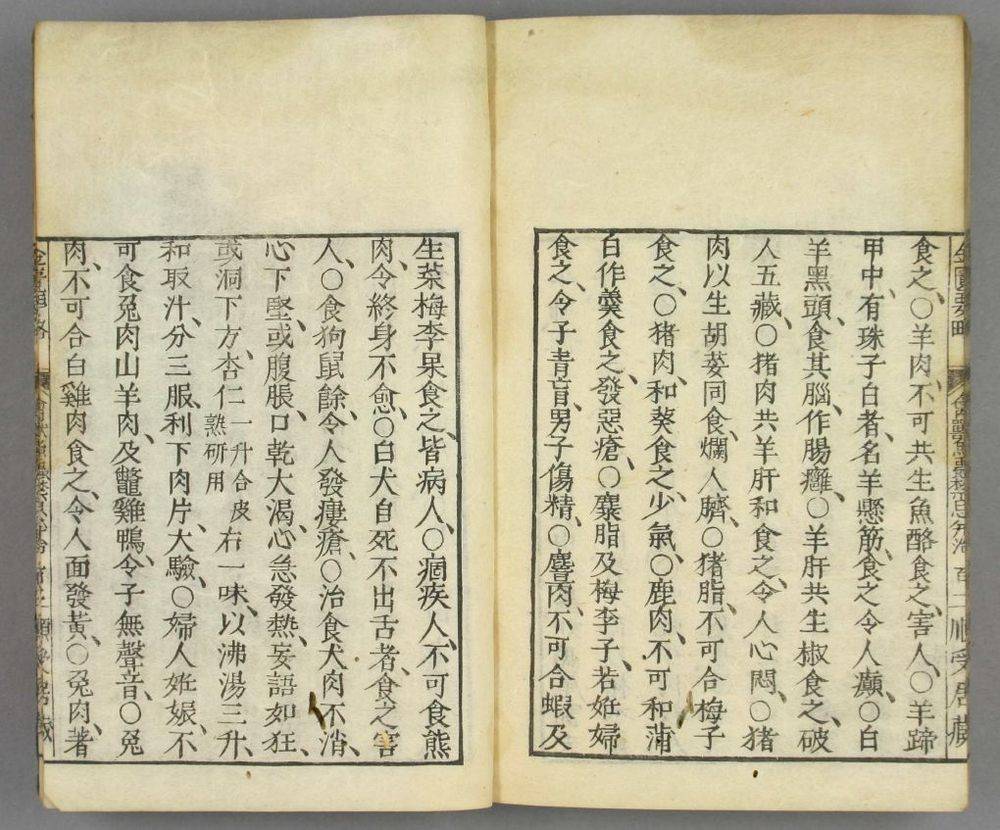 食之、○羊肉、不可共生魚酪食之、害人、○羊蹄
甲中、有珠子白者、名羊懸筋、食之令人癲、○白
羊黑頭、食其腦、作腸癰、○羊肝共生椒食之、破
人五藏、○猪肉共羊肝和食之、令人心悶、○猪
肉以生胡荽同食、爛人臍、○猪脂不可合梅子
食之、○猪肉、和葵食之、少氣、○鹿肉、不可和蒲
白作羹食之、發惡瘡、○麋脂及梅李子、若姙婦
食之、令子青盲、男子傷精、○麞肉、不可合蝦及
生菜梅李果食之、皆病人、○痼疾人、不可食熊
肉、令終身不愈、○白犬自死不出舌者、食之害
人、○食狗鼠餘、令人發瘻瘡、○治食犬肉不消、
心下堅、或腹脹、口乾大渴、心急發熱、妄語如狂、
或洞下方、杏仁一升合皮熟研用右一味、以沸湯三升、
和取汁、分三服、利下肉片、大驗、○婦人姙娠、不
可食兔肉山羊肉、及鼈雞鴨、令子無聲音、○兔
肉、不可合白雞肉食之、令人面發黃、○兔肉、著